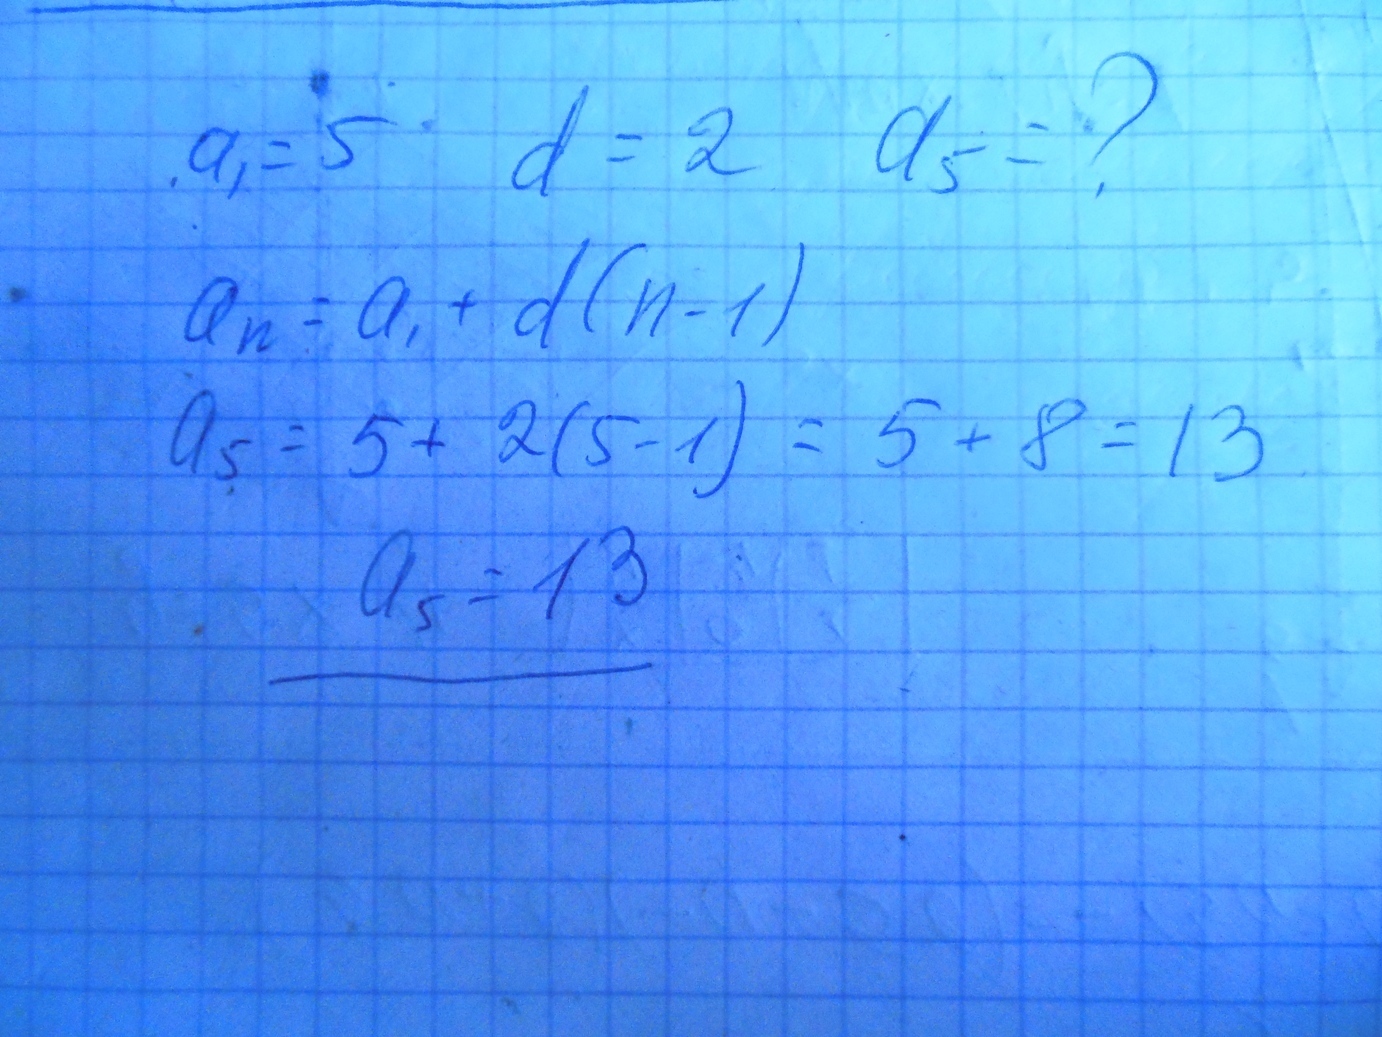 a₁ = 5 d = 2 a₅ = ?
aₙ = a₁ + d(n-1)
a₅ = 5 + 2(5-1) = 5 + 8 = 13
a₅ = 13